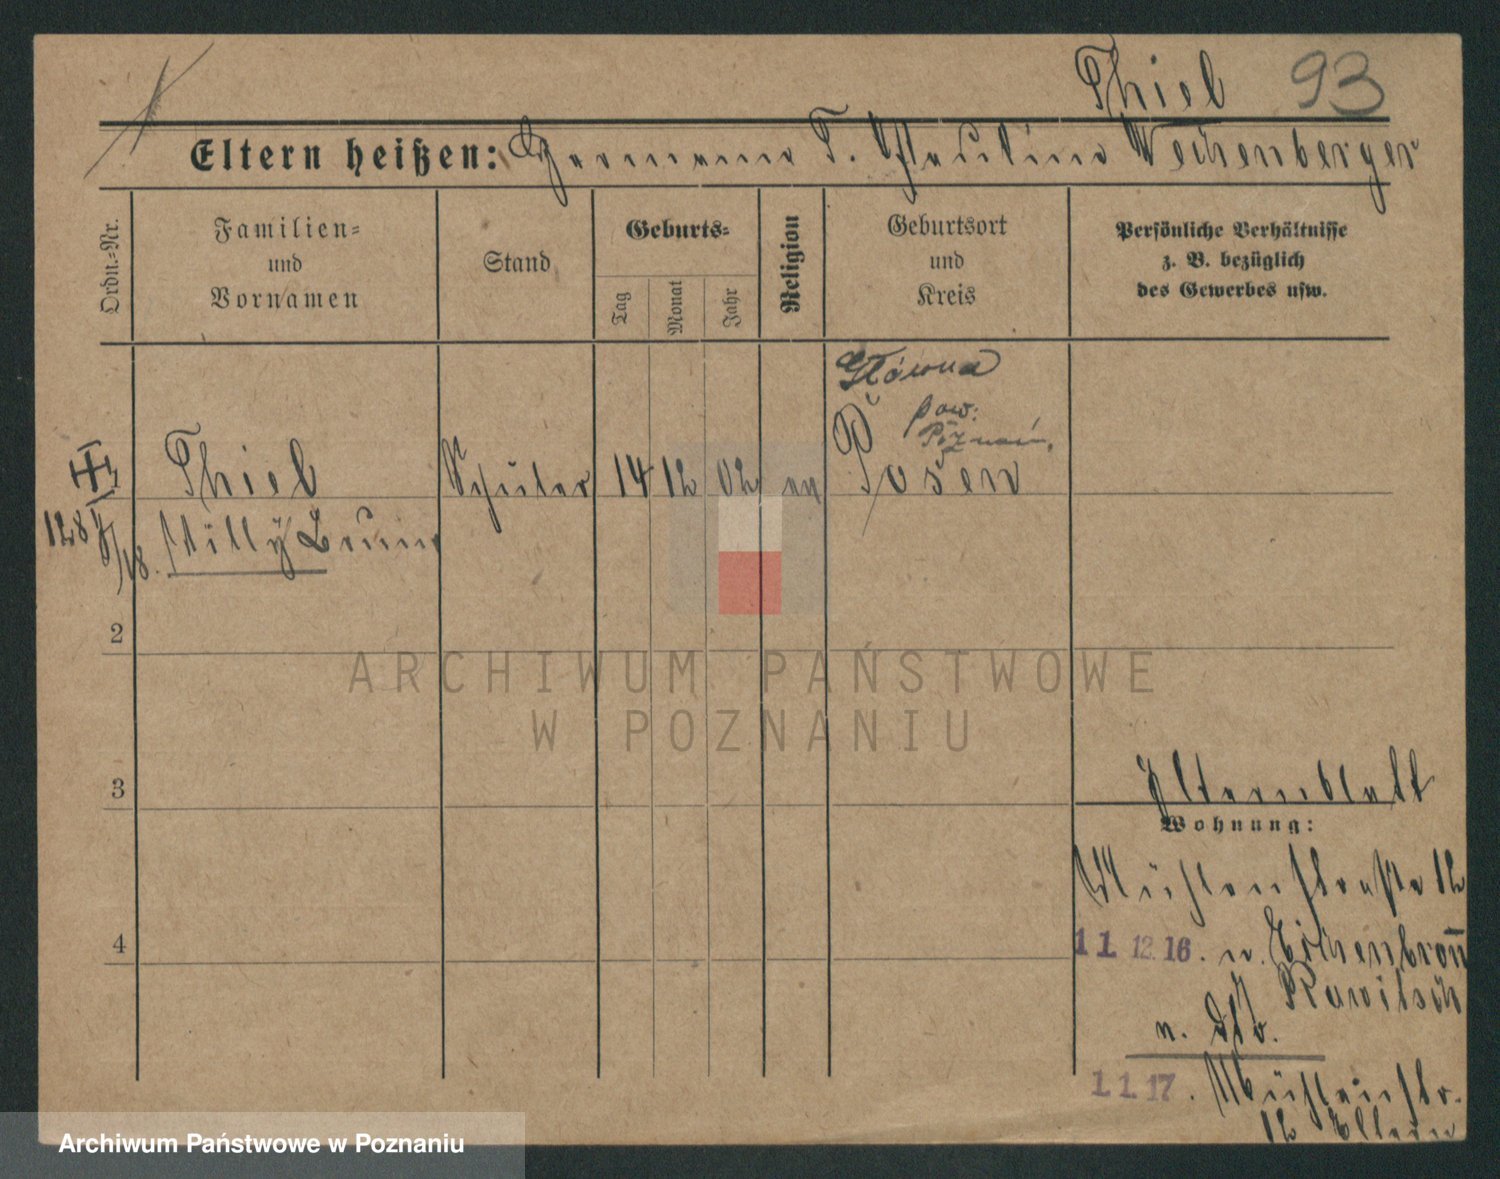 Thiel 93
Eltern heißen: Hermann T. Pauline Weichenberger
Ordn.-Nr.
Familien-
und
Vornamen
Stand
Geburts-
Tag
Monat
Jahr
Religion
Geburtsort
und
Kreis
Persönliche Verhältnisse
z. B. bezüglich
des Gewerbes usw.
Główna
pow.
Poznań.
Thiel Schüler 14 12 02 ev Posen
Willy Bruno
2
3
4
Elternblatt
Wohnung:
Mühlenstraße 12
11. 12. 16. n.
Rawitsch
1. 1. 17. Mühlenstr.
12 Eltern
ARCHIWUM PAŃSTWOWE
W POZNANIU
Archiwum Państwowe w Poznaniu